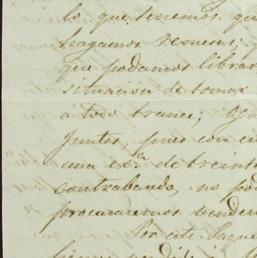 lo que terremos que
hagamos remeras; y
que podamos librar
situacion de tomar
a todo trance;
juntos, pues con
una exª de treinta
contrabando, no pod
procuraremos vender
Por este Paque